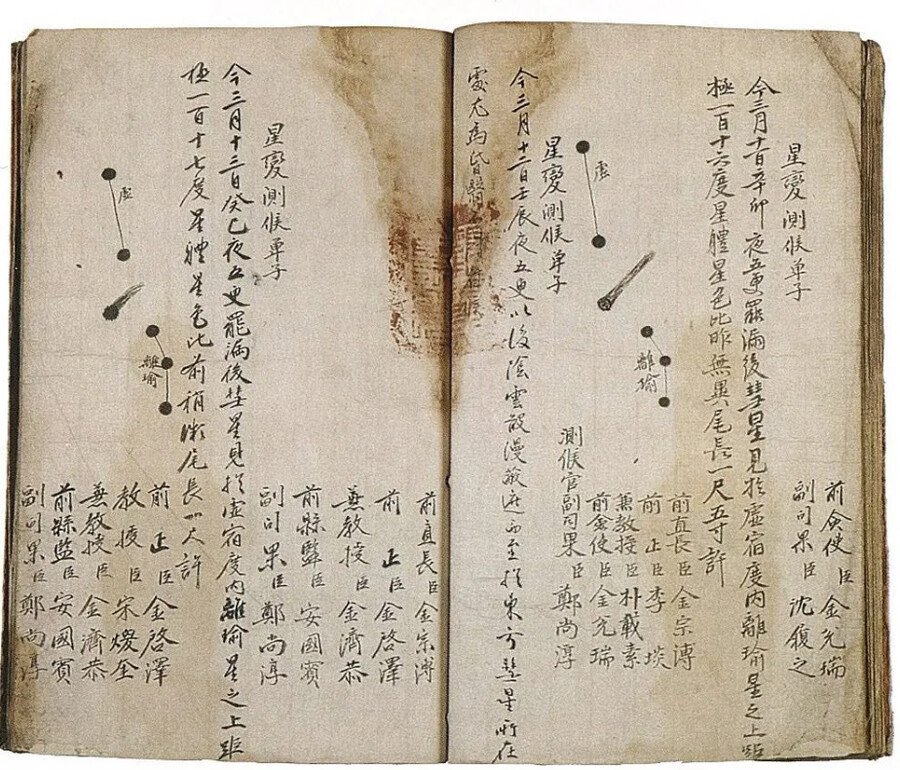 前僉使臣金兌瑞
副司果臣沈履之
星變測候單子
今三月十一日辛卯夜五更罷漏後彗星見於虛宿度內離瑜星之上距
極一百十六度星體星色比昨無異尾長一尺五寸許
虛
離瑜
前直長臣金宗溥
前正臣李埮
兼教授臣朴載素
前僉使臣金兌瑞
測候官副司果臣鄭尚淳
星變測候單子
今三月十二日壬辰夜五更以後陰雲散漫蔽遮而至於東方彗星所在
處尤爲昏翳候
前直長臣金宗溥
前正臣金啓澤
兼教授臣金濟恭
前縣監臣安國賓
副司果臣鄭尚淳
星變測候單子
今三月十三日癸巳夜五更罷漏後彗星見於虛宿度內離瑜星之上距
極一百十七度星體星色比前稍微尾長一尺許
虛
離瑜
前正臣金啓澤
教授臣宋
兼教授臣金濟恭
前縣監臣安國賓
副司果臣鄭尚淳